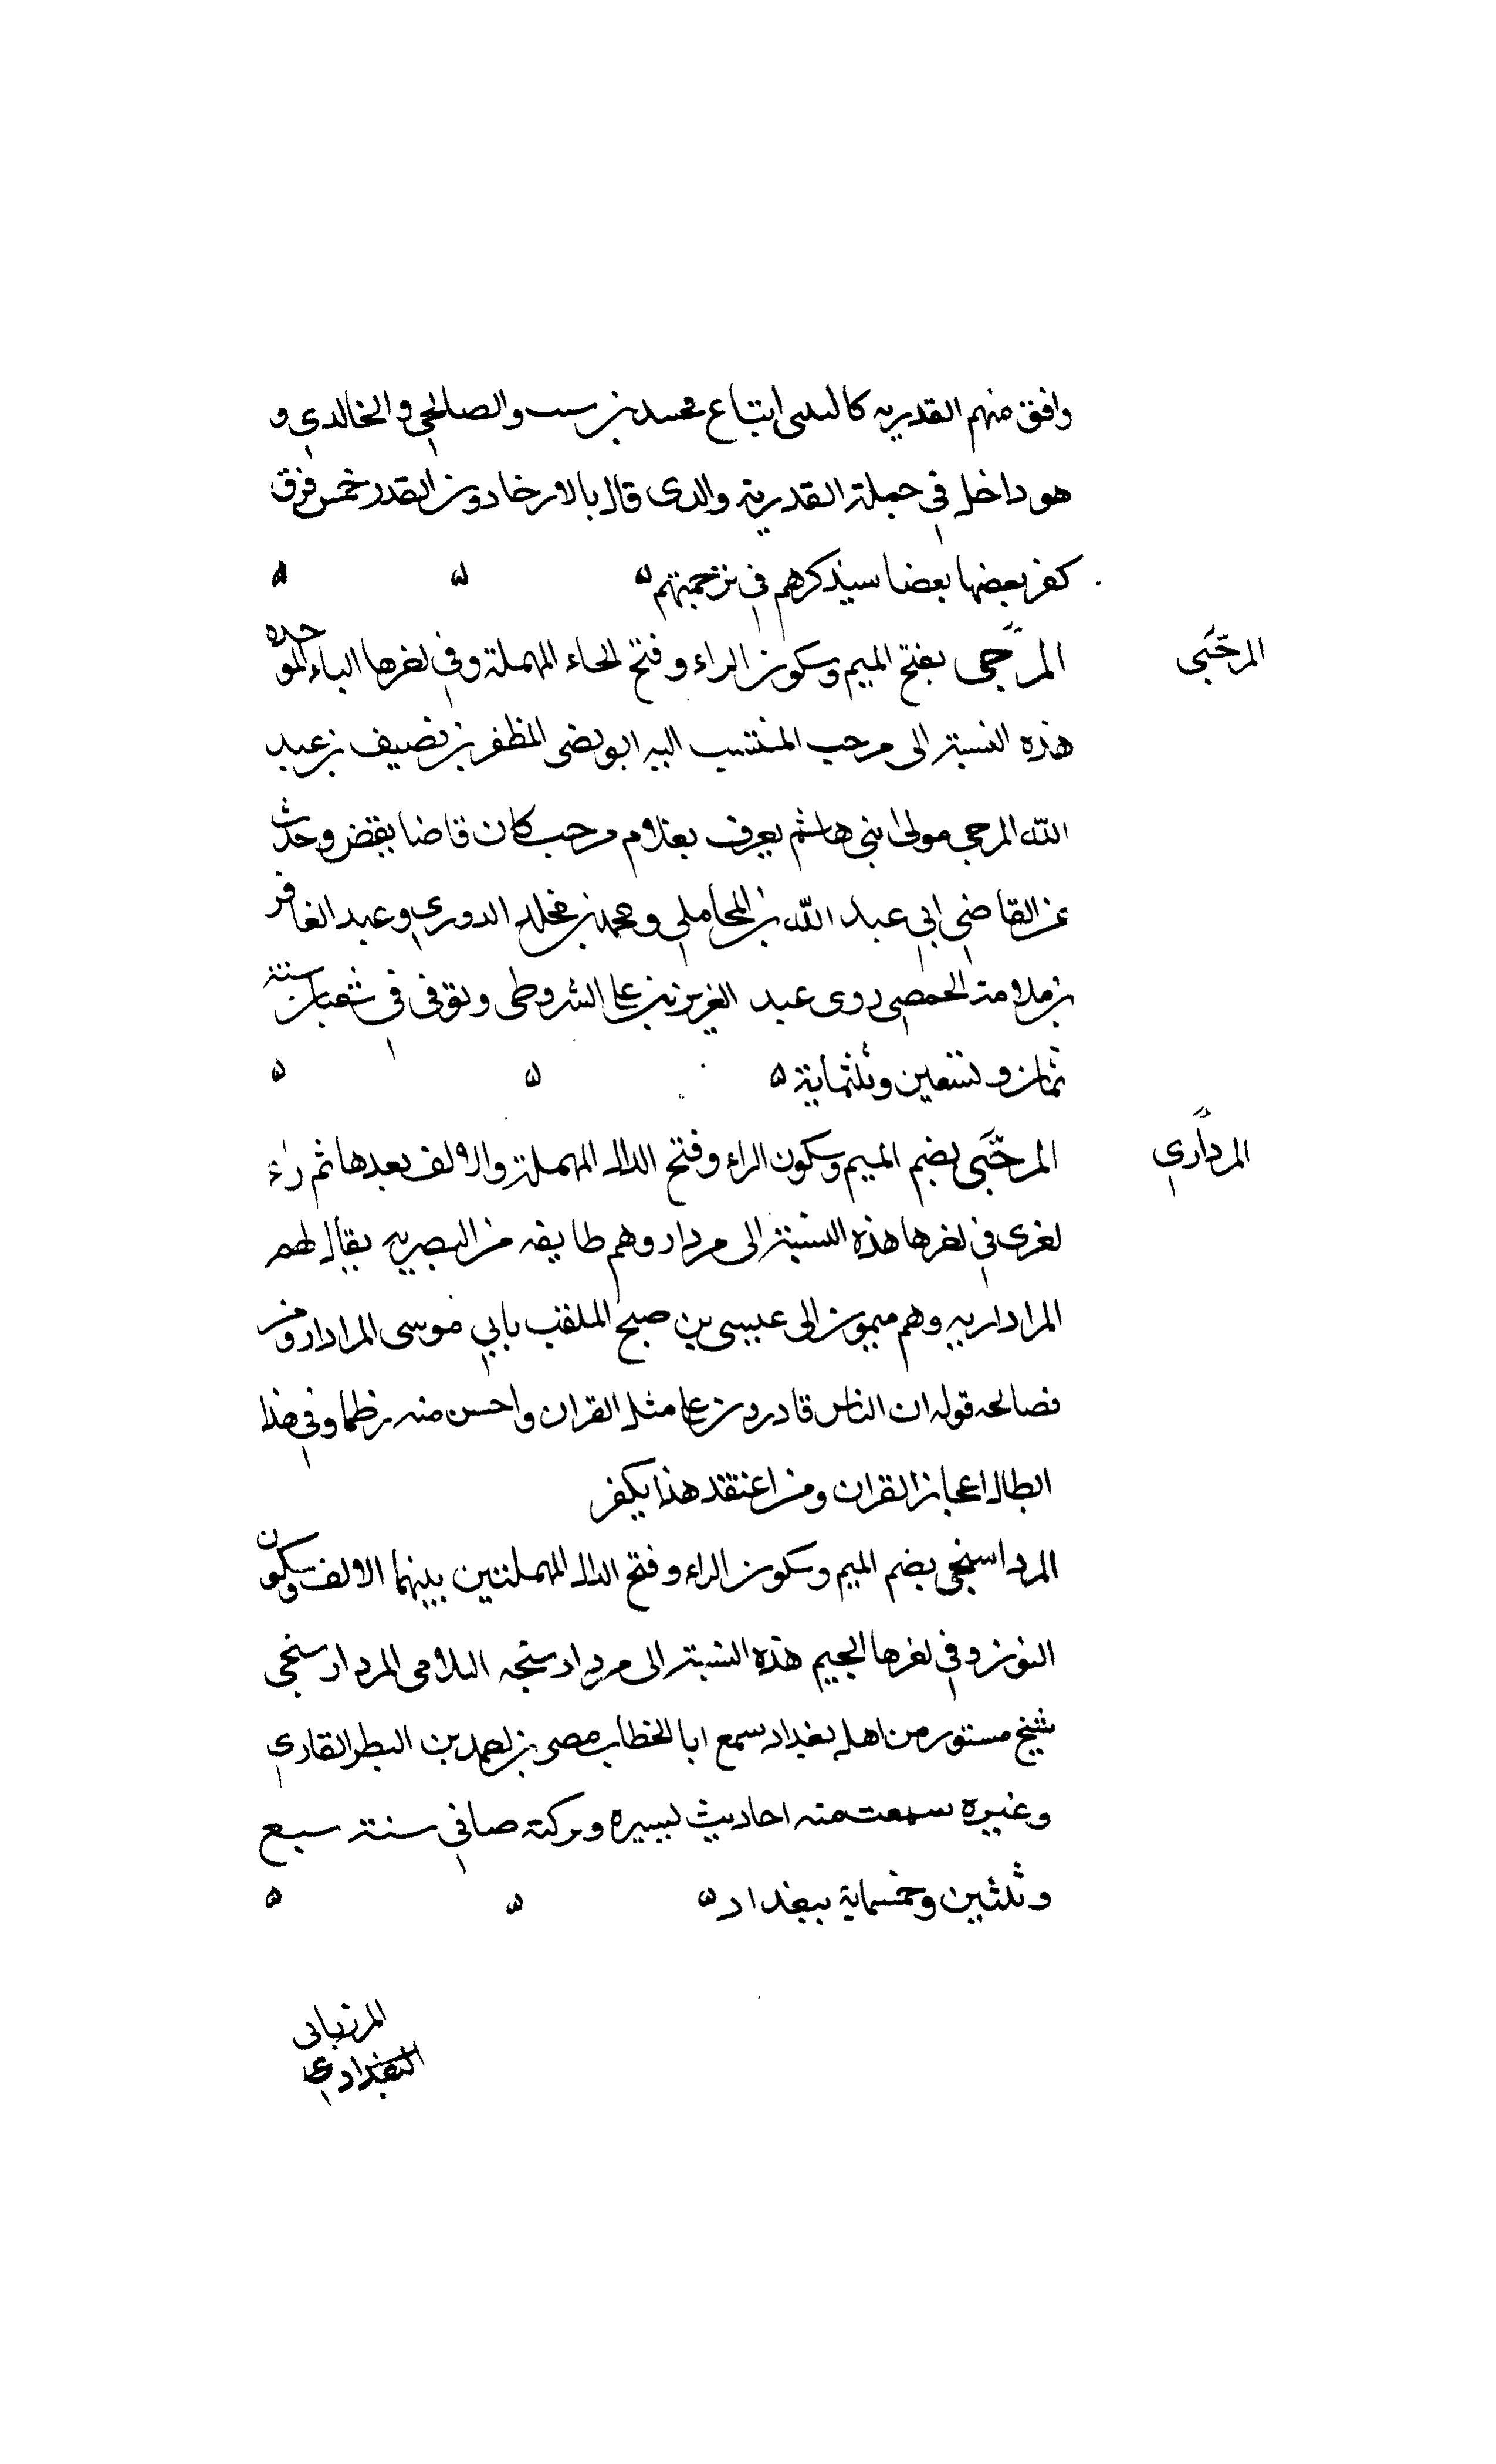 وافق منهم القدريه كالىىىى اتباع محمد بن سىب والصالحي والخالدي و
هو داخل في جملة القدرية والذى قال بالارخا دون القدر خمس فرق
كفر بعضها بعضا سيذكرهم في ترجمتهم ه ه ه
المرحبى
المرحبى بفتح الميم وسكون الراء وفتح الحاء المهملة وفي اخرها الباء الموحده
هذه النسبة الى مرحب المنتسب اليه ابو نصر المظفر بن نصيف بن عبد
الله المرحبي مولى بني هاشم يعرف بغلام مرحب كان قاضا يقض وحدث
عن القاضي ابي عبد الله بن المحاملي ومحمد بن مخلد الدوري وعبد الغافر
بن سلامة الحمصي روى عبد العزيز بن على الشروطى وتوفى في شعبان سنة
ثمان وتسعين وثلثماية ه ه ه
المرداري
المرحبى بضم الميم وسكون الراء وفتح الدال المهملة والالف بعدها ثم راء
اخرى في اخرها هذه النسبة الى مردار وهم طايفه من البصريه يقال لهم
المرداريه وهم ميمون الى عيسى بن صبح الملقب بابي موسى المرادار ومن
فضالحه قوله ان الناس قادرون على مثل القران واحسن منه نظما وفي هذا
ابطال اعجاز القران ومن اعتقد هذا يكفر
المرداسنجى بضم الميم وسكون الراء وفتح الدال المهملتين بينهما الالف وسكون
النون وفي اخرها الجيم هذه النسبة الى مردارسنجه السلامى المردارسنجى
شيخ مستور من اهل بغداد سمع ابا الخطاب نصر بن احمد بن البطر القاري
وغيره سمعت منه احاديث يسيره وبركة صافي سنة سبع
وثلثين وخمسماية ببغداد ه ه ه
المرزبانى
البغدادي